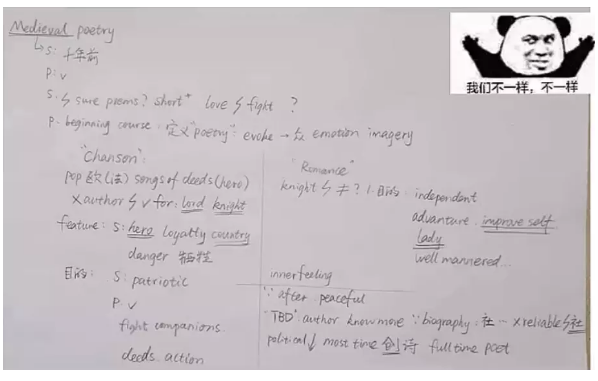 Medieval poetry
↳ S: 十年前
P: v
S: ϟ sure poems? short⁺ love ϟ fight ?
P: beginning course. 定义 "poetry": evoke → emotion imagery
"Chanson":
pop 欧(法) songs of deeds (hero)
x author ϟ v for: lord knight
feature: S: hero loyalty country
danger 牺牲
目的: S: patriotic
P: v
fight companions
deeds. action
"Romance"
knight ϟ ≠? 1. 目的: independent
advanture. improve self
lady
well mannered...
inner feeling
∵ after peaceful
"TBD" author know more ∵ biography: 社 - x reliable ϟ 社
political ↓ most time 创诗 full time poet
我们不一样，不一样